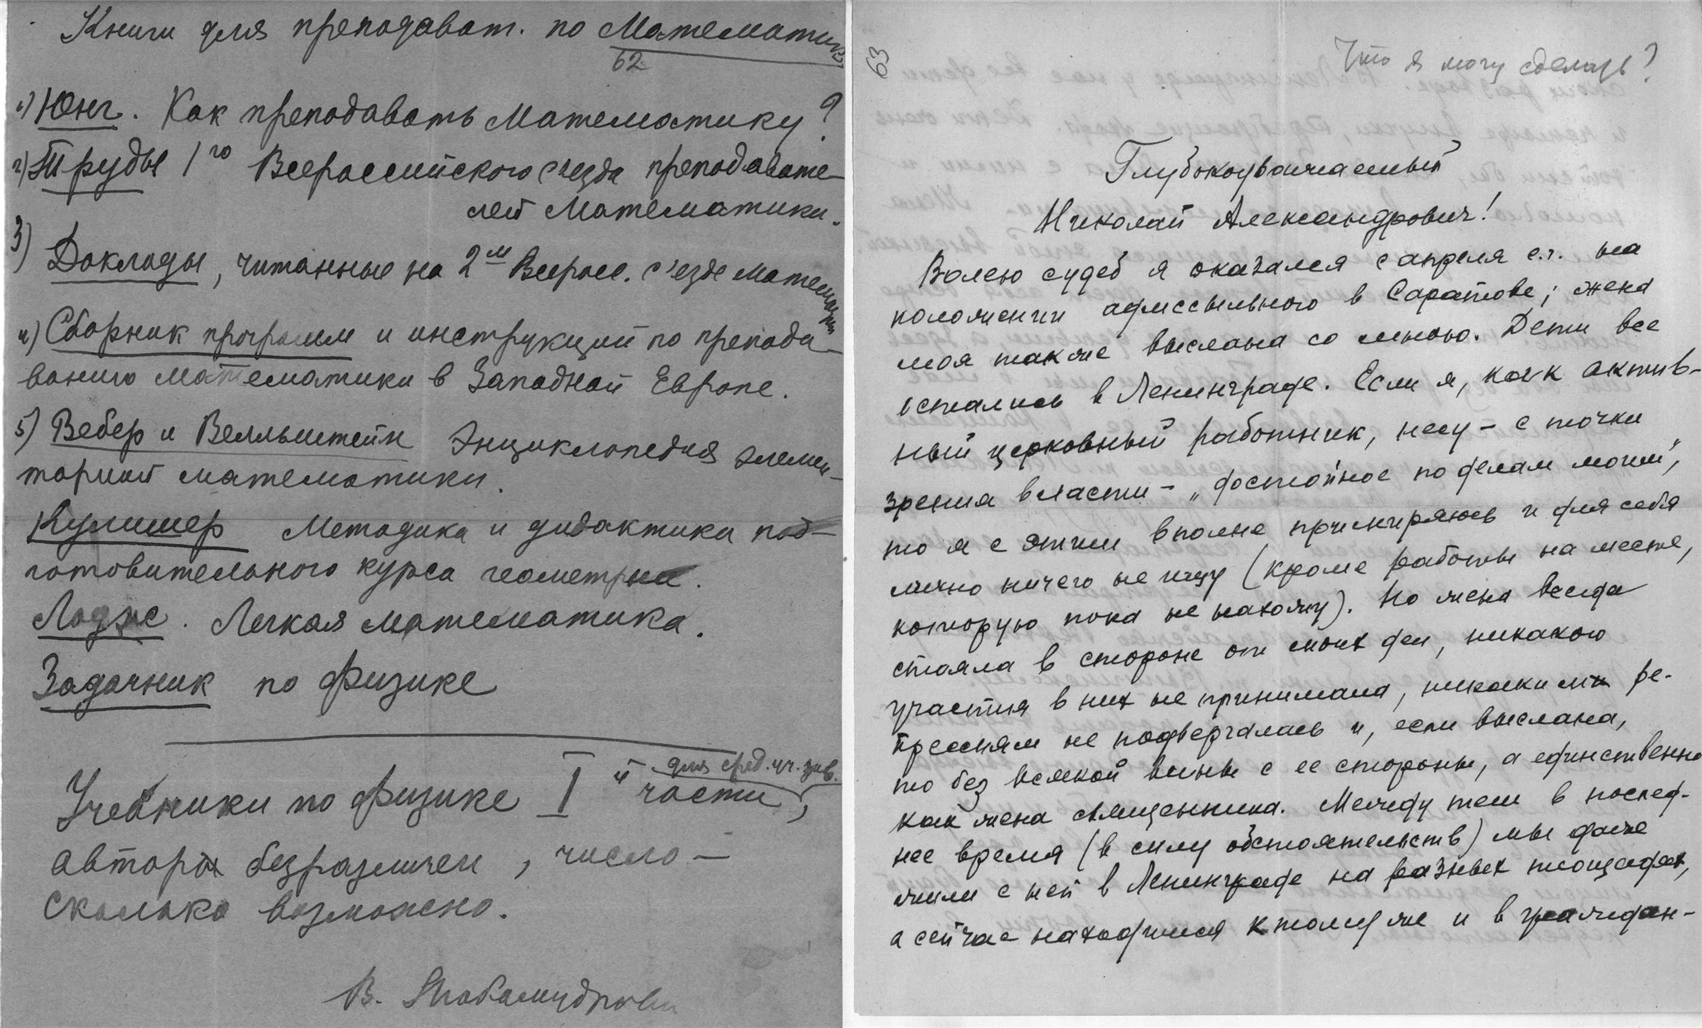 Книги для преподават. по Математике
62
1) Юнг. Как преподавать математику?
2) Труды 1го Всероссийского съезда преподавате-
лей математики.
3) Доклады, читанные на 2м Всеросс. с'езде математиков
4) Сборник программ и инструкций по препода-
ванию математики в Западной Европе.
5) Вебер и Велльштейн Энциклопедия элемен-
тарной математики.
Кулишер Методика и дидактика под-
готовительного курса геометрии.
Лодж. Легкая математика.
Задачник по физике
для сред. уч. зав.
Учебники по физике I ч части,
автор безразличен, число –
сколько возможно.
В.
63
Что я могу сделать?
Глубокоуважаемый
Николай Александрович!
Волею судеб я оказался с апреля с.г. на
положении админссыльного в Саратове; жена
моя также выслана со мною. Дети все
остались в Ленинграде. Если я, как актив-
ный церковный работник, несу – с точки
зрения власти – „достойное по делам моим",
то я с этим вполне примиряюсь и для себя
лично ничего не ищу (кроме работы на месте,
которую пока не нахожу). Но жена всегда
стояла в стороне от моих дел, никакого
участия в них не принимала, никаким ре-
прессиям не подвергалась и, если выслана,
то без всякой вины с ее стороны, а единственно
как жена священника. Между тем в послед-
нее время (в силу обстоятельств) мы даже
жили с ней в Ленинграде на разных площадях,
а сейчас находимся к тому же и в граждан-